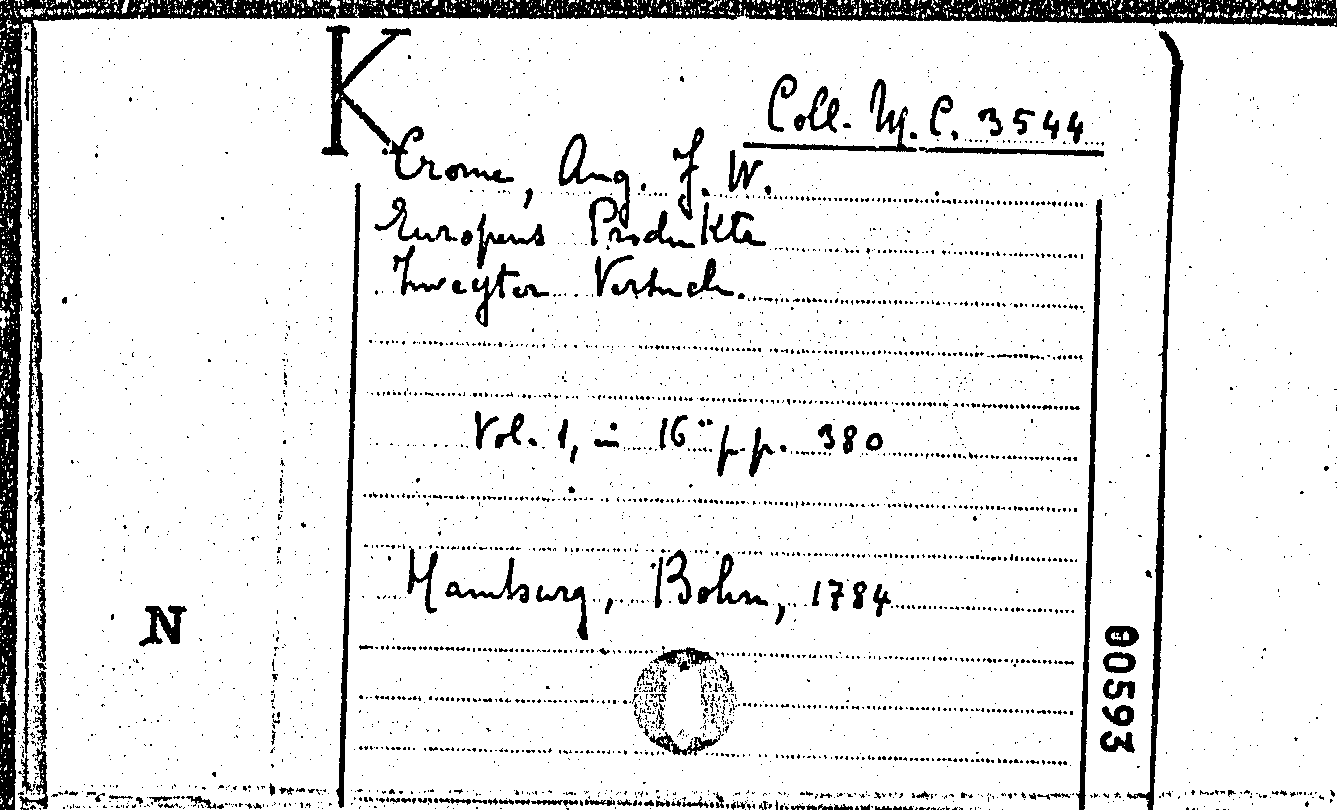 K
Coll. M. C. 3544
Crome, Aug. F. W.
Europens Produkte
Zweyter Versuch.
Vol. 1, in 16° pp. 380
Hamburg, Bohn, 1784
N
00593